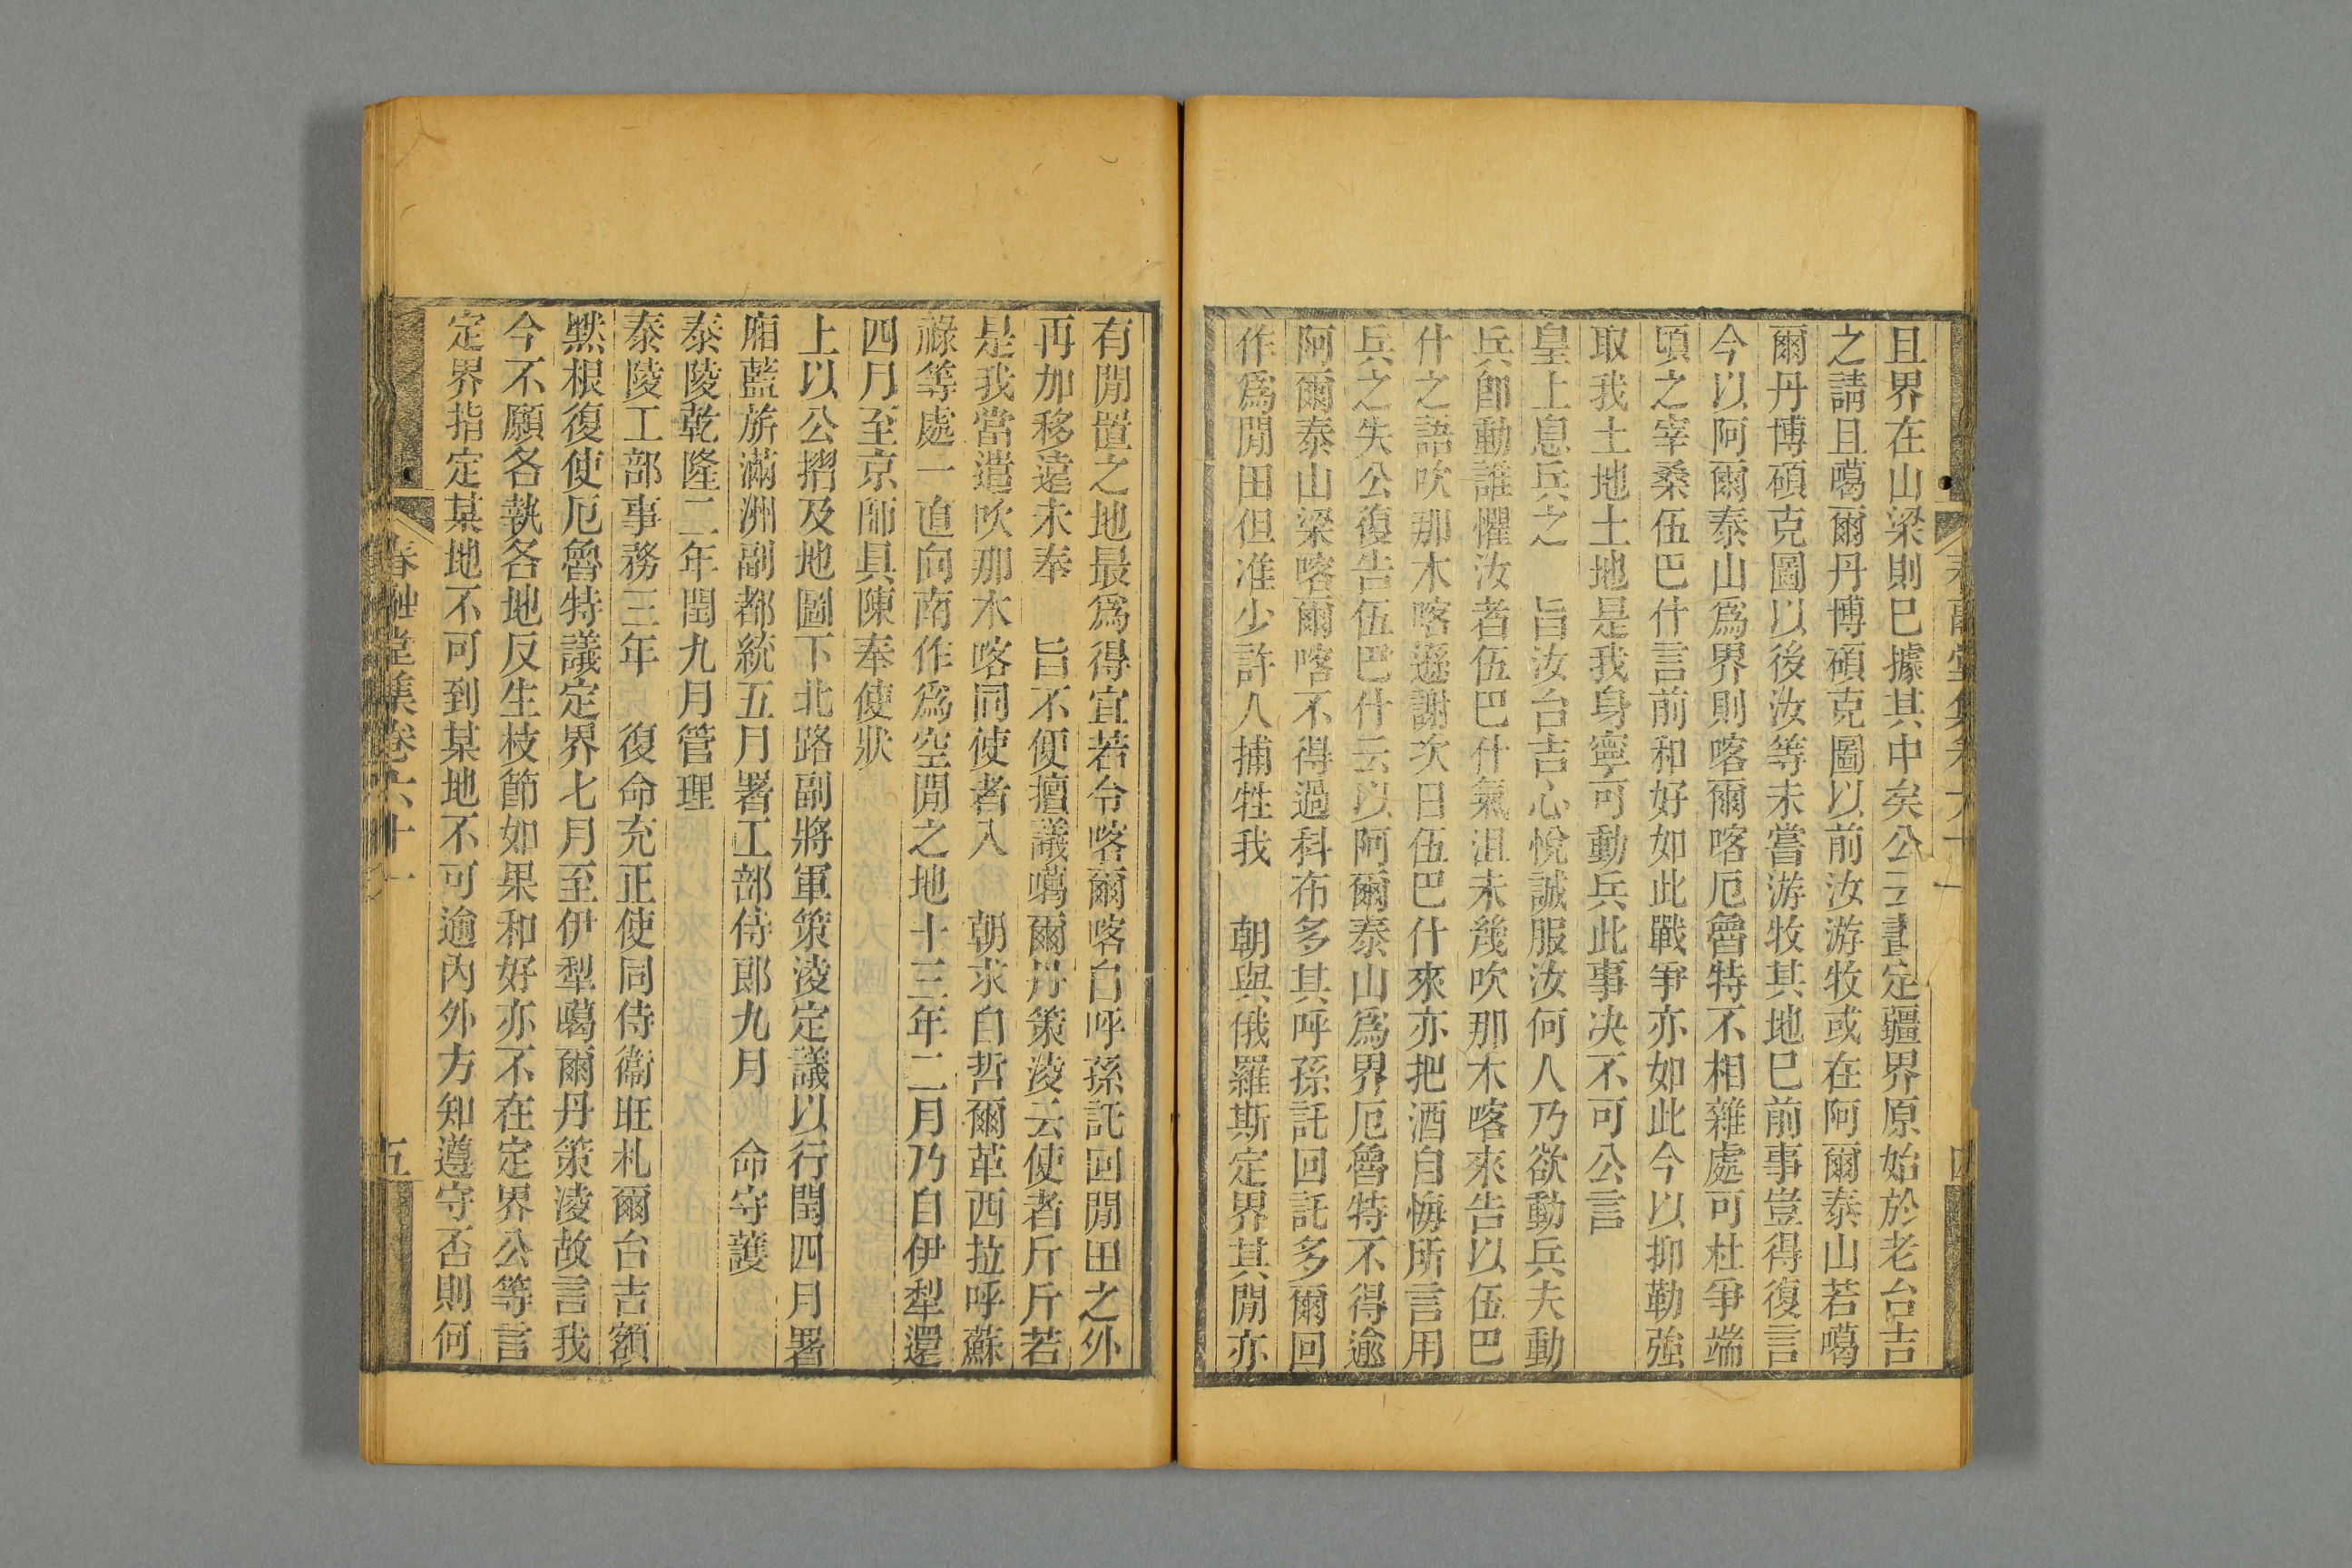 且界在山梁則已據其中矣公云畫定疆界原始於老台吉
之請且噶爾丹博碩克圖以前汝游牧或在阿爾泰山若噶
爾丹博碩克圖以後汝等未嘗游牧其地巳前事豈得復言
今以阿爾泰山爲界則喀爾喀厄魯特不相雜處可杜爭端
頃之宰桑伍巴什言前和好如此戰爭亦如此今以抑勒強
取我土地土地是我身寧可動兵此事决不可公言
皇上息兵之 旨汝台吉心悅誠服汝何人乃欲動兵夫動
兵卽動誰懼汝者伍巴什氣沮未幾吹那木喀來告以伍巴
什之語吹那木喀遜謝次日伍巴什來亦把酒自悔所言用
兵之失公復告伍巴什云以阿爾泰山爲界厄魯特不得逾
阿爾泰山梁喀爾喀不得過科布多其呼孫託回託多爾回
作爲閒田但准少許人捕牲我 朝與俄羅斯定界其閒亦
有閒置之地最爲得宜若令喀爾喀自呼孫託回閒田之外
再加移遠未奉 旨不便擅議噶爾丹策淩云使者斤斤若
是我當遣吹那木喀同使者入 朝求自哲爾革西拉呼蘇
祿等處一直向南作爲空閒之地十三年二月乃自伊犁還
四月至京師具陳奉使狀
上以公摺及地圖下北路副將軍策淩定議以行閏四月署
廂藍旂滿洲副都統五月署工部侍郎九月 命守護
泰陵乾隆二年閏九月管理
泰陵工部事務三年 復命充正使同侍衞旺札爾台吉額
默根復使厄魯特議定界七月至伊犁噶爾丹策淩故言我
今不願各執各地反生枝節如果和好亦不在定界公等言
定界指定某地不可到某地不可逾內外方知遵守否則何
春融堂集卷六十一
五